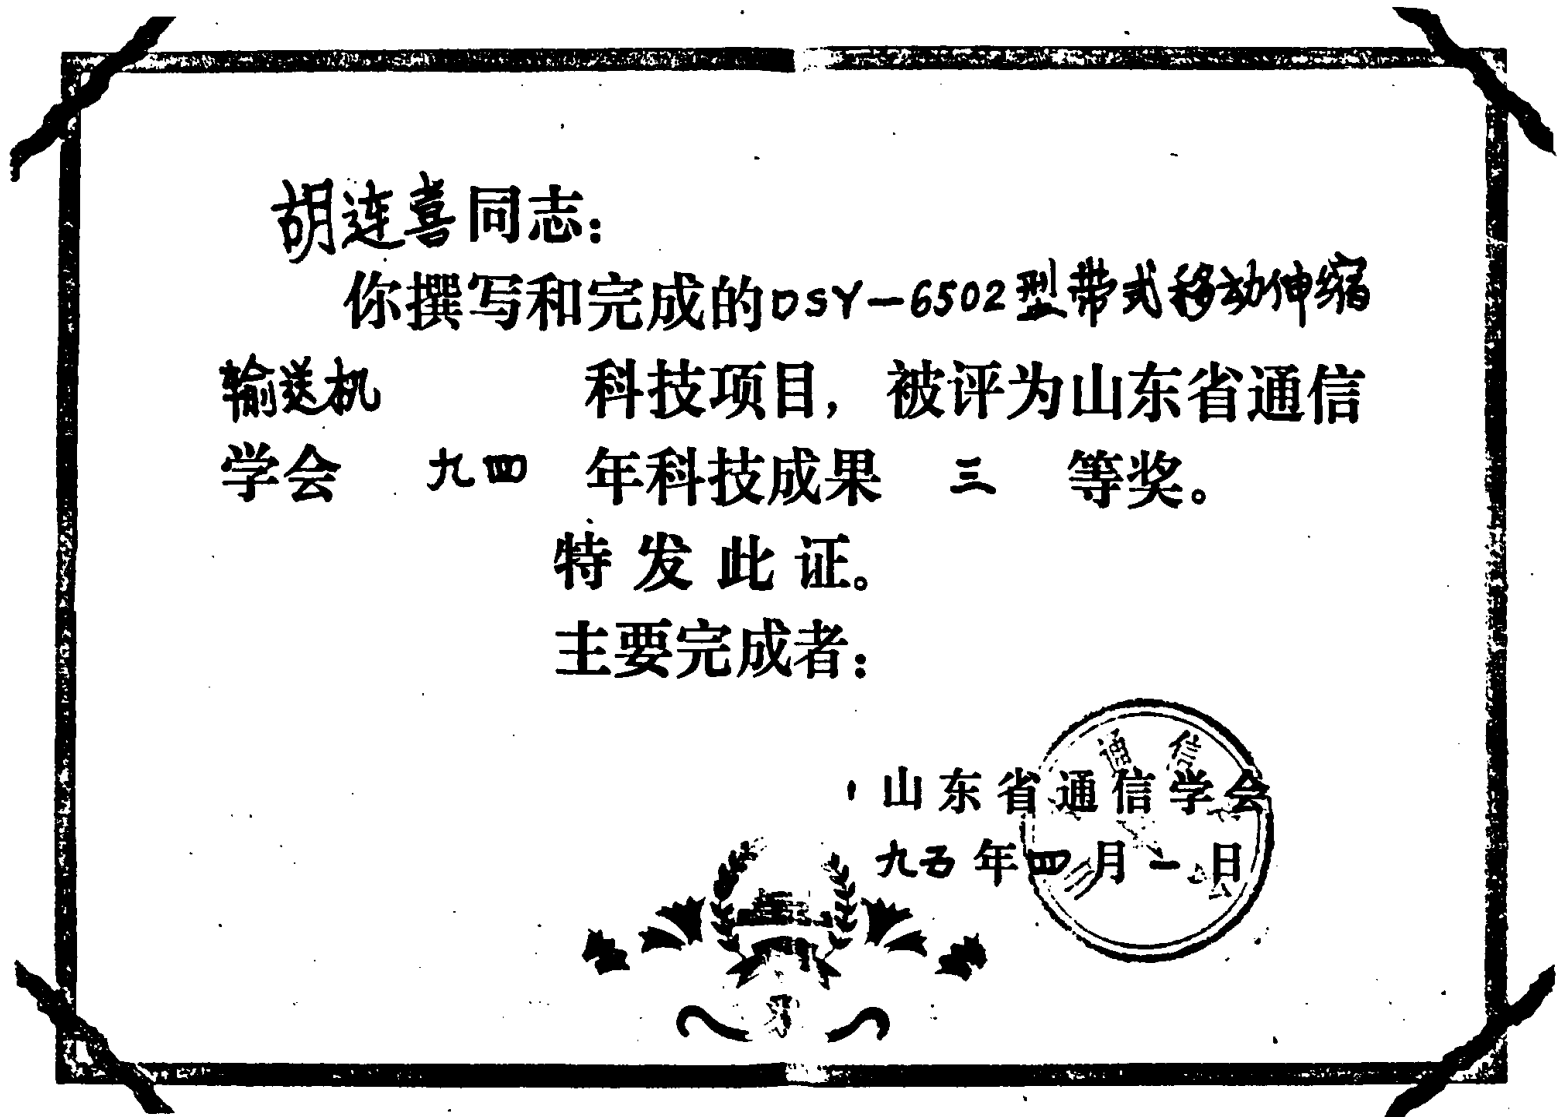 胡连喜同志：
你撰写和完成的DSY-6502型带式移动伸缩
输送机 科技项目，被评为山东省通信
学会 九四 年科技成果 三 等奖。
特发此证。
主要完成者：
通信
山东省通信学会
九五年四月一日